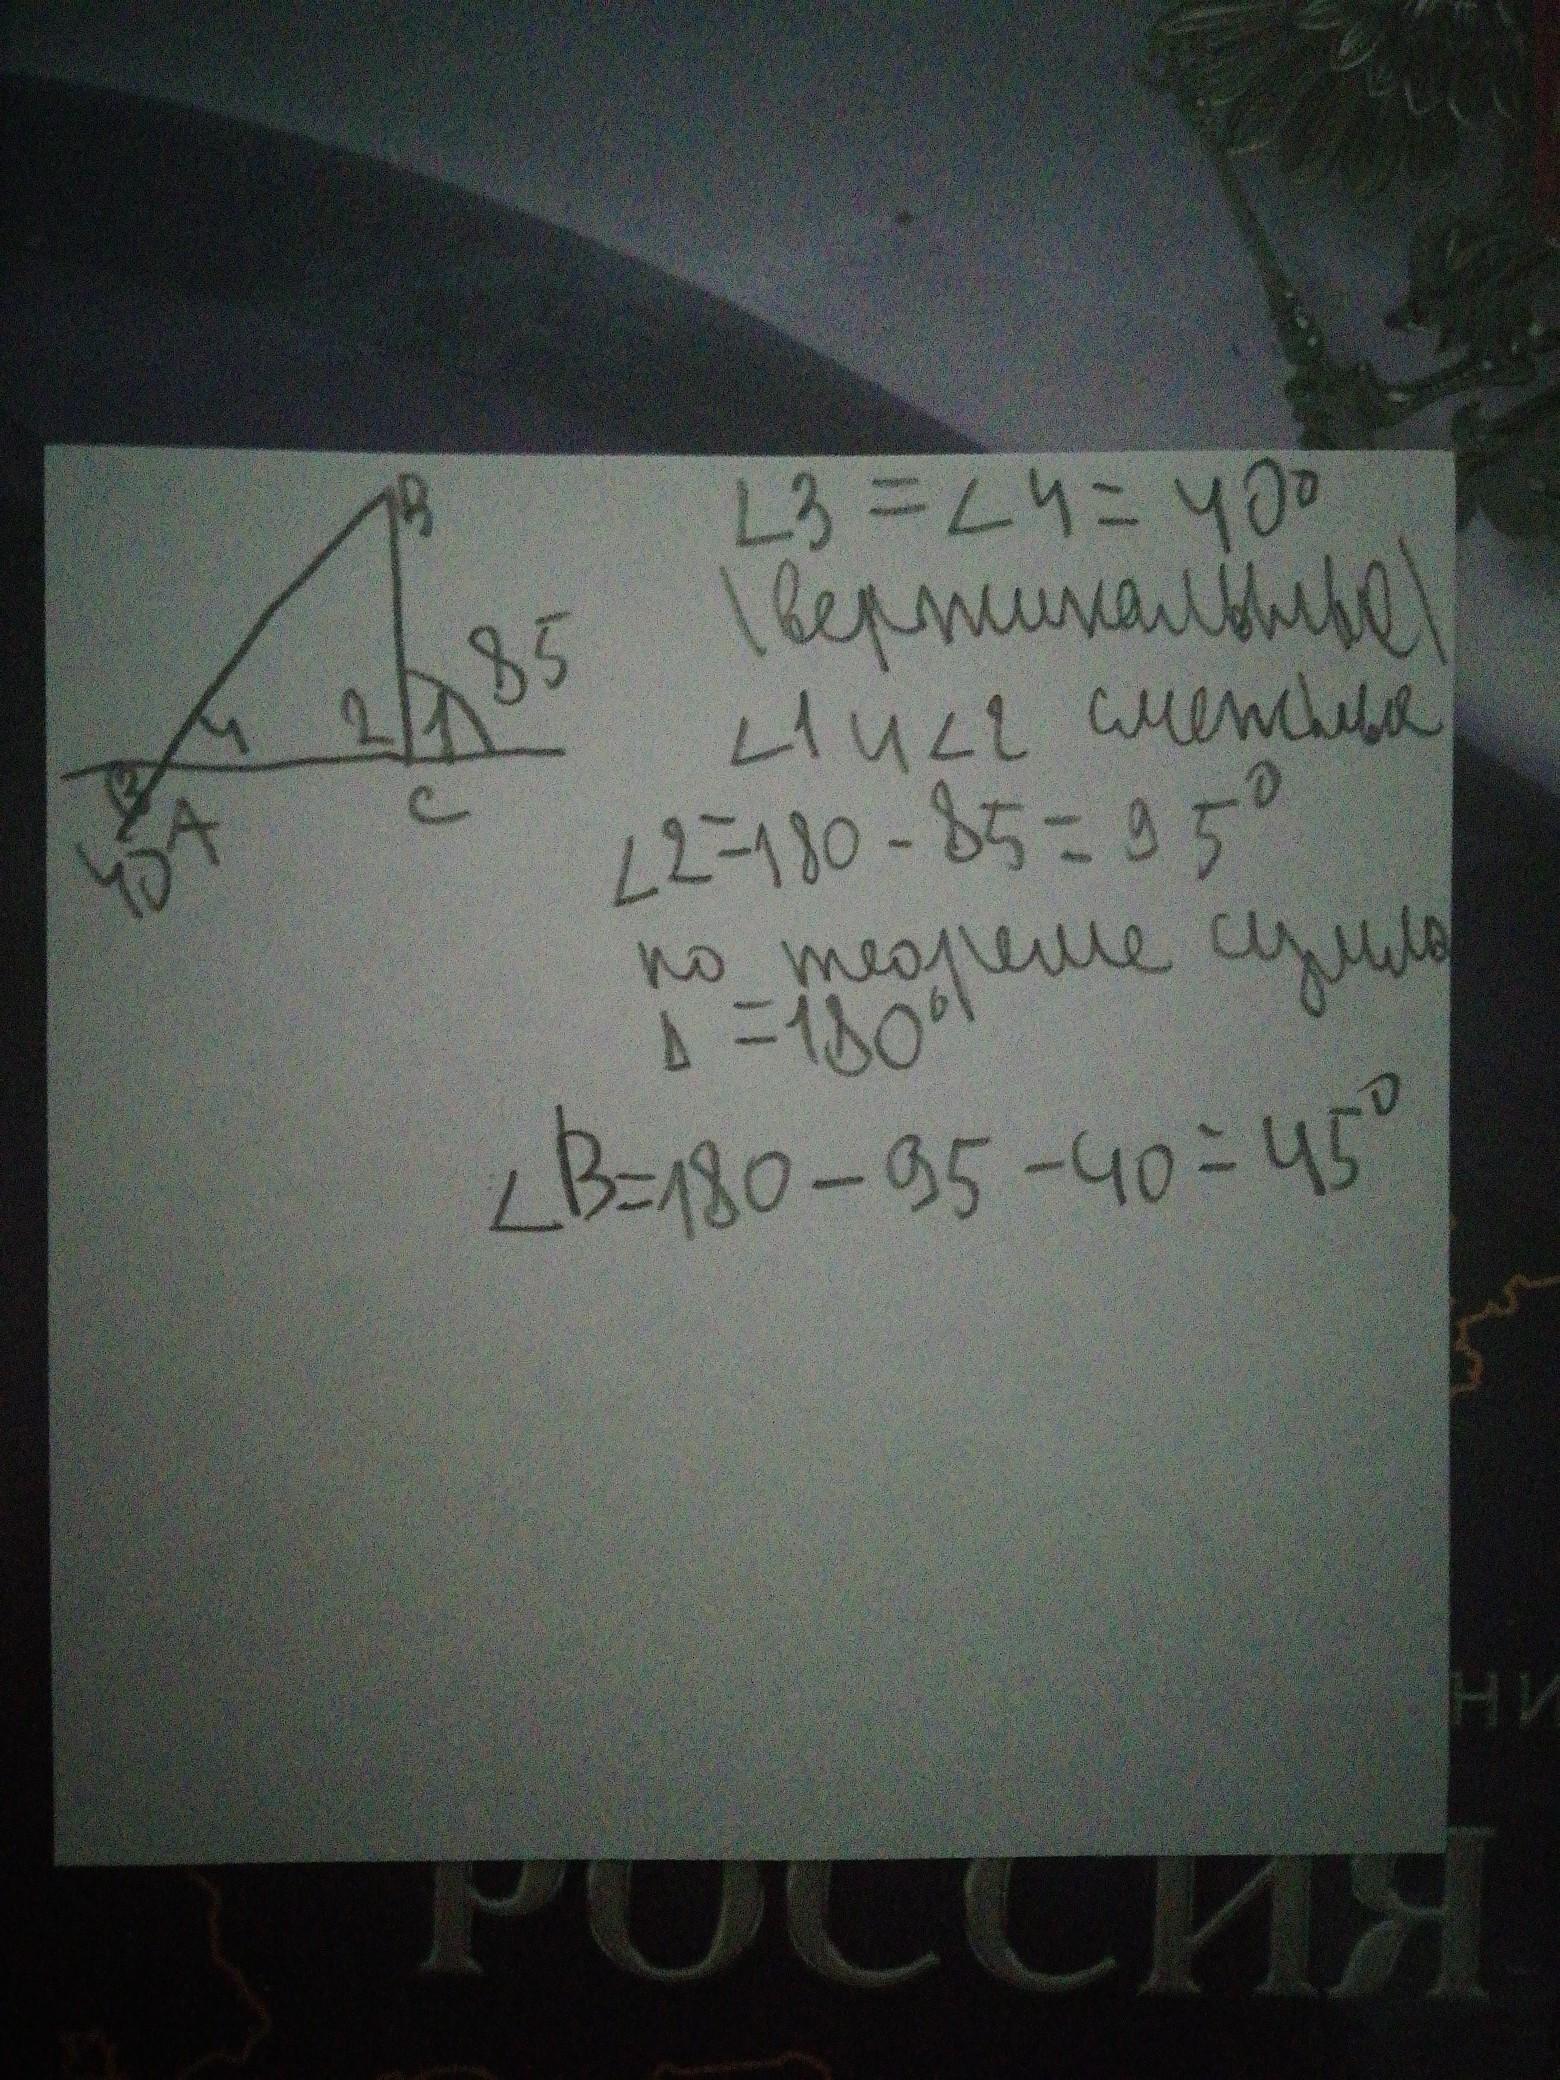 B
85
4
2
1
3
A
C
40
∠3 = ∠4 = 40°
\вертикальные\
∠1 и ∠2 смежные
∠2=180-85=95°
по теореме сумма
Δ =180°
∠B=180-95-40=45°
НИ
РОССИЯ